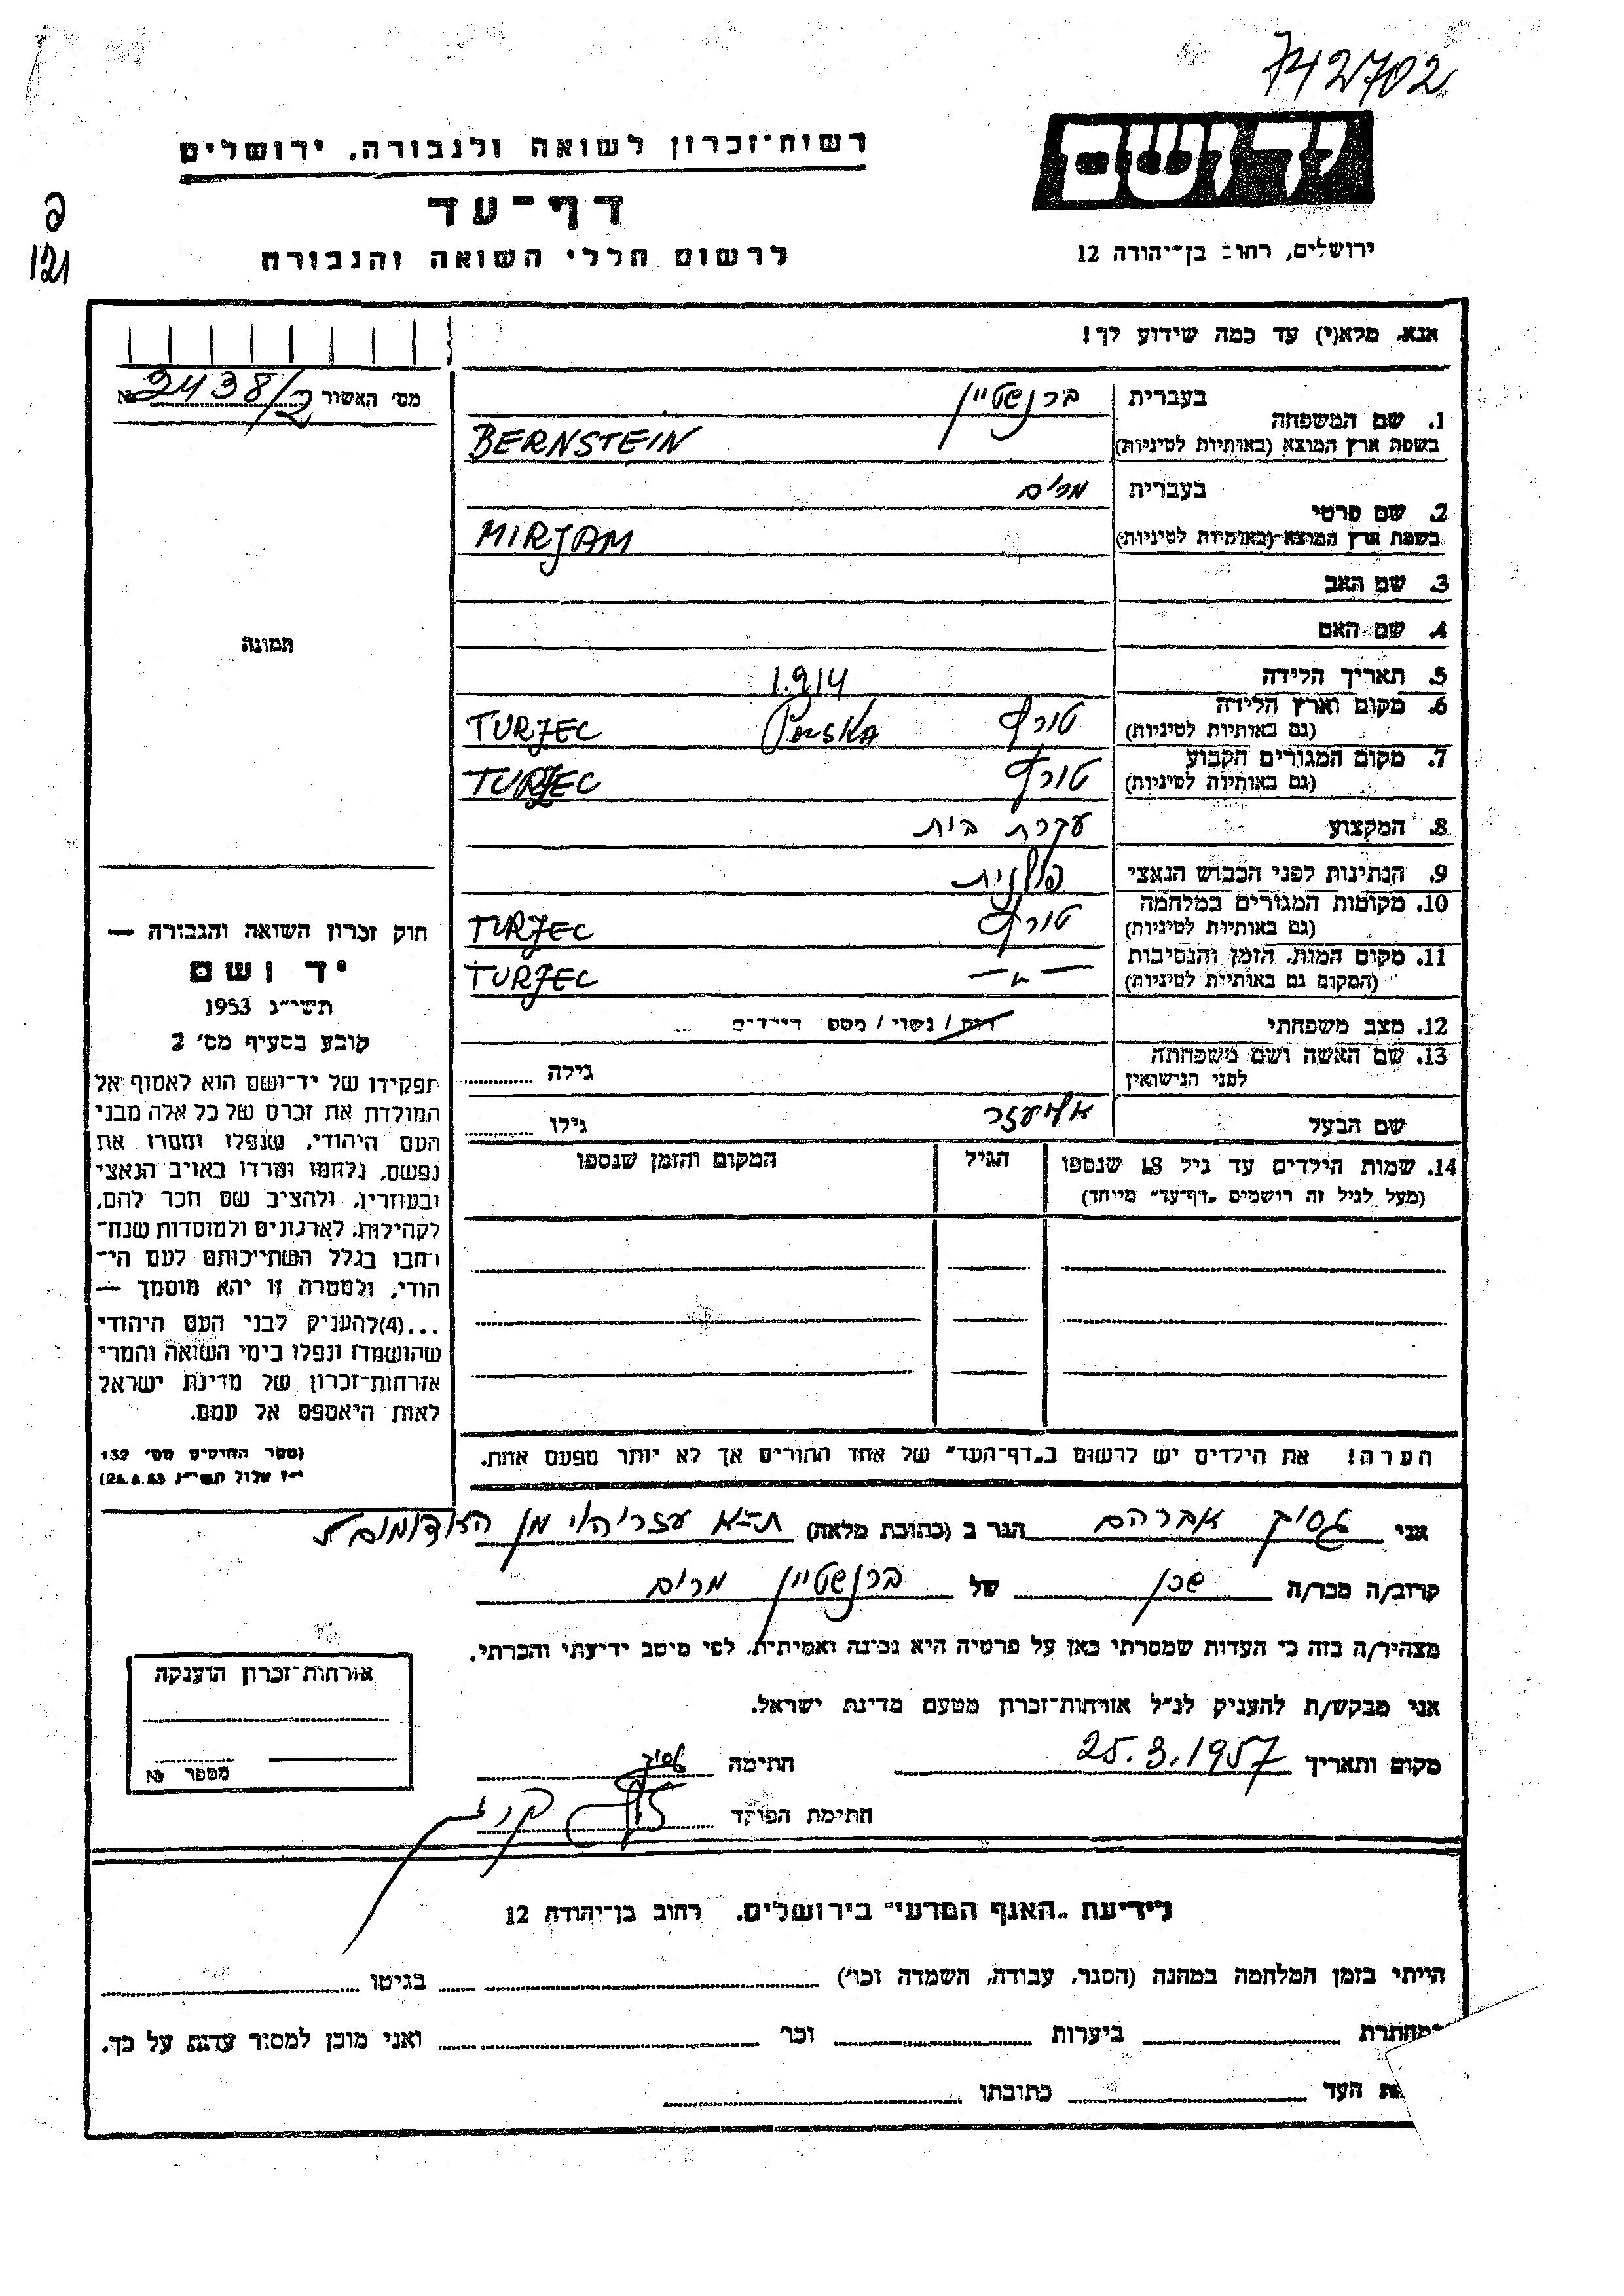 742702
יד ושם
ירושלים, רחוב בן־יהודה 12
רשות־זכרון לשואה ולגבורה, ירושלים
דף־עד
לרשום חללי השואה והגבורה
121
אנא, מלא(י) עד כמה שידוע לך!
מס' האשור № 2438/2
1. שם המשפחה
בעברית ברנשטיין
בשפת ארץ המוצא (באותיות לטיניות) BERNSTEIN
2. שם פרטי
בעברית מרים
בשפת ארץ המוצא (באותיות לטיניות) MIRJAM
3. שם האב
4. שם האם
5. תאריך הלידה 1914
6. מקום וארץ הלידה
(גם באותיות לטיניות) טורץ POLSKA TURZEC
7. מקום המגורים הקבוע
(גם באותיות לטיניות) טורץ TURZEC
8. המקצוע עקרת בית
9. הנתינות לפני הכבוש הנאצי פולנית
10. מקומות המגורים במלחמה
(גם באותיות לטיניות) טורץ TURZEC
11. מקום המות, הזמן והנסיבות
(המקום גם באותיות לטיניות) — " — TURZEC
12. מצב משפחתי רווק / נשוי / מספר הילדים
13. שם האשה ושם משפחתה
לפני הנישואין גילה
שם הבעל אליעזר גילו
14. שמות הילדים עד גיל 18 שנספו הגיל המקום והזמן שנספו
(מעל לגיל זה רושמים "דף־עד" מיוחד)
הערה! את הילדים יש לרשום ב"דף־העד" של אחד ההורים אך לא יותר מפעם אחת.
תמונה
חוק זכרון השואה והגבורה —
יד ושם
תשי"ג 1953
קובע בסעיף מס' 2
תפקידו של יד־ושם הוא לאסוף אל
המולדת את זכרם של כל אלה מבני
העם היהודי, שנפלו ומסרו את
נפשם, נלחמו ומרדו באויב הנאצי
ובעוזריו, ולהציב שם וזכר להם,
לקהילות, לארגונים ולמוסדות שנח־
רבו בגלל השתייכותם לעם הי־
הודי, ולמטרה זו יהא מוסמך —
...(4) להעניק לבני העם היהודי
שהושמדו ונפלו בימי השואה והמרי
אזרחות־זכרון של מדינת ישראל
לאות היאספם אל עמם.
(ספר החוקים מס' 132
י"ז אלול תשי"ג 28.8.53)
אני אברהם הגר ב (כתובת מלאה) ת"א עזריהו מן האדומים
קרוב/ה מכר/ה שכן של ברנשטיין מרים
מצהיר/ה בזה כי העדות שמסרתי כאן על פרטיה היא נכונה ואמיתית, לפי מיטב ידיעתי והכרתי.
אני מבקש/ת להעניק לנ"ל אזרחות־זכרון מטעם מדינת ישראל.
מקום ותאריך 25.3.1957 חתימה
חתימת הפוקד
אזרחות־זכרון הוענקה
מספר №
לידיעת "האגף המדעי" בירושלים, רחוב בן־יהודה 12
הייתי בזמן המלחמה במחנה (הסגר, עבודה, השמדה וכו') בגיטו
במחתרת ביערות וכו' ואני מוכן למסור עדות על כך.
העד כתובתו